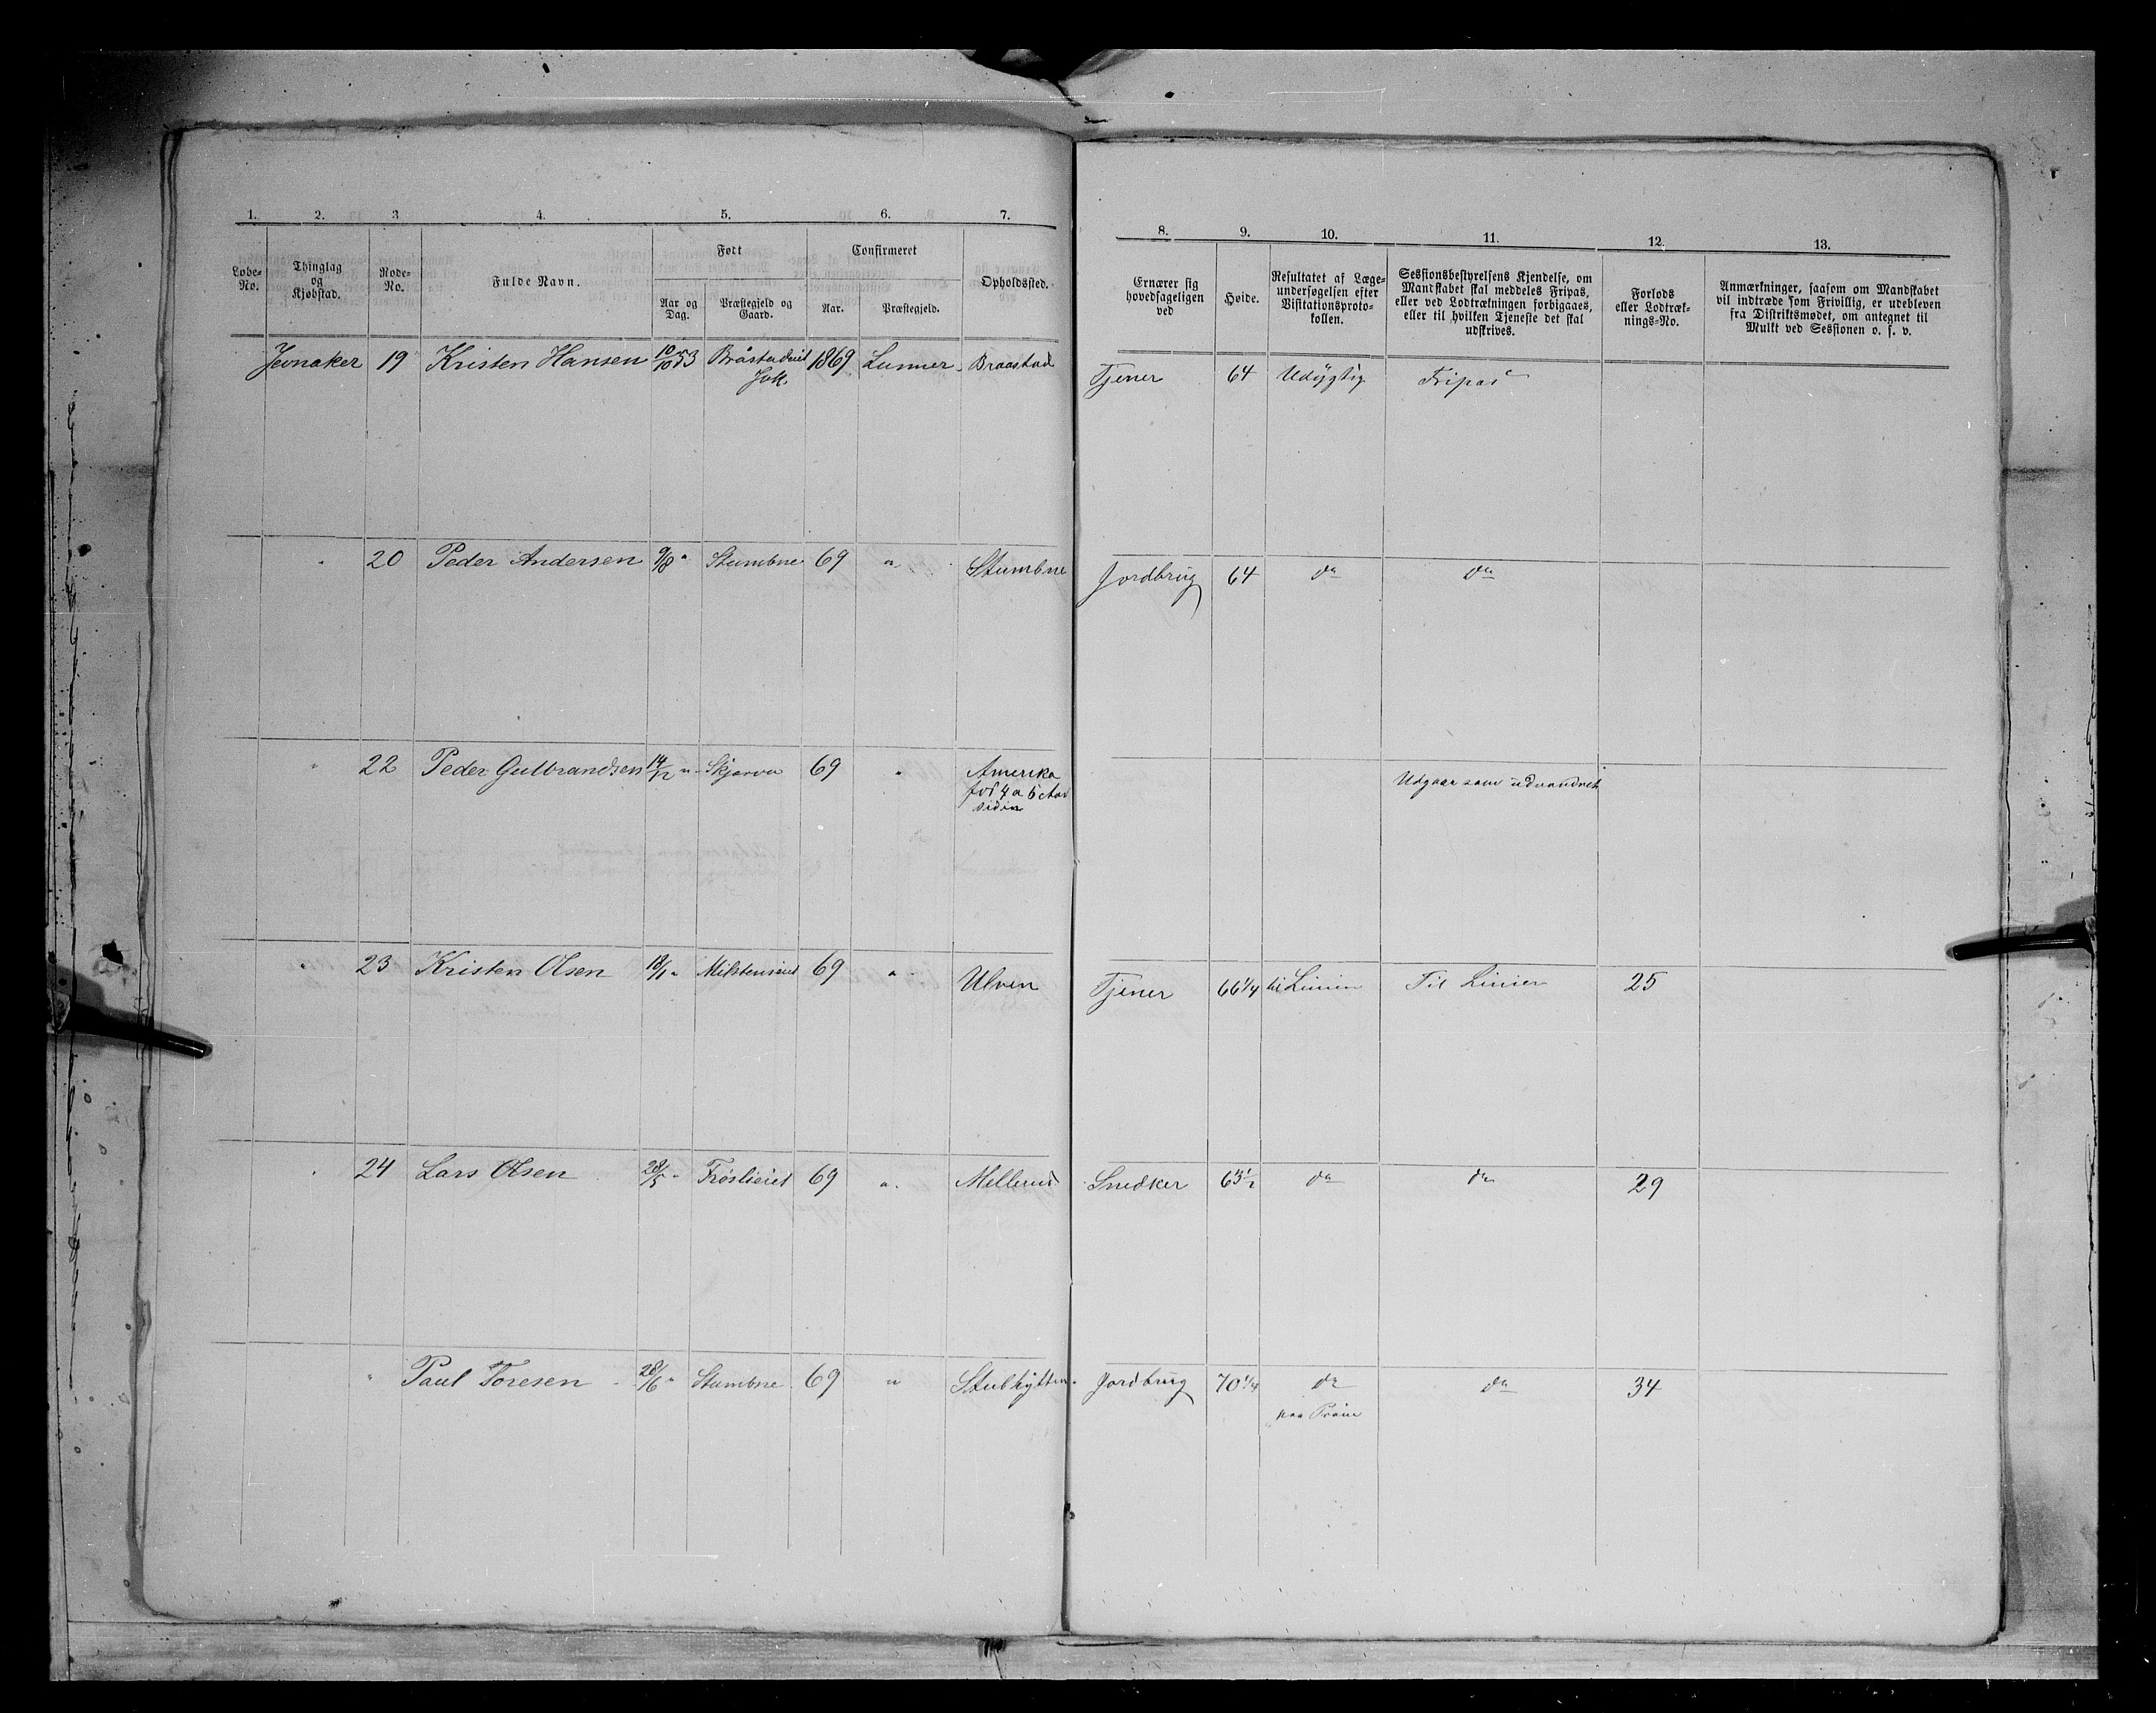 1. 2. 3 4. 5. 6. 7.
Løbe-No. Thinglag og Kjøbstad. Rode-No. Fulde Navn. Født Confirmeret Opholdssted.
Aar og Dag. Præstegjeld og Gaard. Aar. Præstegjeld.
Jevnaker 19 Kristen Hansen 10/10 53 Bråstadeiet 1869 Lunner Braastad
Jvk
" 20 Peder Andersen 9/8 " Stumbne 69 " Stumbne
" 22 Peder Gulbrandsen 14/12 " Skjerva 69 " Amerika
for 4 a 5 Aar
siden
" 23 Kristen Olsen 18/1 " Milsteneiet 69 " Ulven
" 24 Lars Olsen 28/5 " Frøslieiet 69 " Mellerud
" Paul Toresen 28/6 " Stumbne 69 " Stubhytten
8. 9. 10. 11. 12. 13.
Ernærer sig hovedsageligen ved
Høide.
Resultatet af Læge-
undersøgelsen efter
Visitationsproto-
kollen.
Sessionsbestyrelsens Kjendelse, om
Mandskabet skal meddeles Fripas,
eller ved Lodtrækningen forbigaaes,
eller til hvilken Tjeneste det skal
udskrives.
Forlods
eller Lodtræk-
nings-No.
Anmærkninger, saasom om Mandskabet
vil indtræde som Frivillig, er udebleven
fra Distriktsmødet, om antegnet til
Mulkt ved Sessionen o. s. v.
Tjener 64 Udygtig Fripas
Jordbrug 64 do do
Udgaar som udvandret
Tjener 66 1/4 til Linien Til Linien 25
Snedker 63 1/2 do do 29
Jordbrug 70 1/4 do do 34
paa Prøve